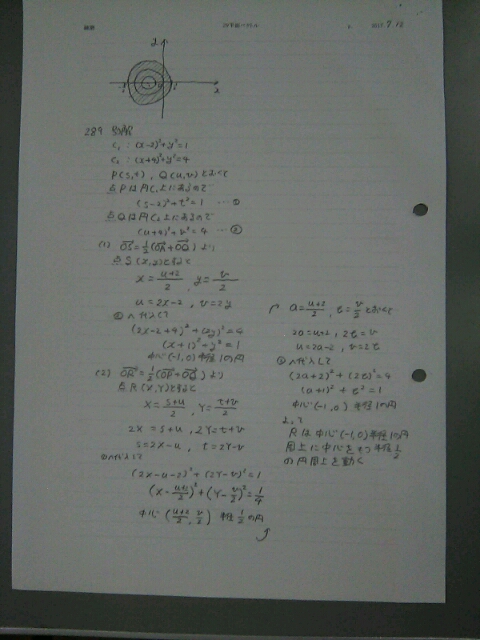 289 別解
C₁ : (x-2)²+y²=1
C₂ : (x+4)²+y²=4
P(s,t), Q(u,v)とおくと
点Pは円C₁上にあるので
(s-2)²+t²=1 …①
点Qは円C₂上にあるので
(u+4)²+v²=4 …②
(1) OS=½(OA+OQ) より
点S(x,y)とおくと
x=(u+2)/2, y=v/2
u=2x-2, v=2y
②へ代入して
(2x-2+4)²+(2y)²=4
(x+1)²+y²=1
中心(-1,0) 半径1の円
(2) OR=½(OP+OQ) より
点R(X,Y)とおくと
X=(s+u)/2, Y=(t+v)/2
2X=s+u, 2Y=t+v
s=2X-u, t=2Y-v
①へ代入して
(2X-u-2)²+(2Y-v)²=1
(X-(u+2)/2)²+(Y-v/2)²=1/4
中心((u+2)/2, v/2) 半径½の円
a=(u+2)/2, b=v/2とおくと
2a=u+2, 2b=v
u=2a-2, v=2b
②へ代入して
(2a+2)²+(2b)²=4
(a+1)²+b²=1
中心(-1,0) 半径1の円
よって
Rは中心(-1,0)半径1の円
周上に中心をもつ半径½
の円周上を動く